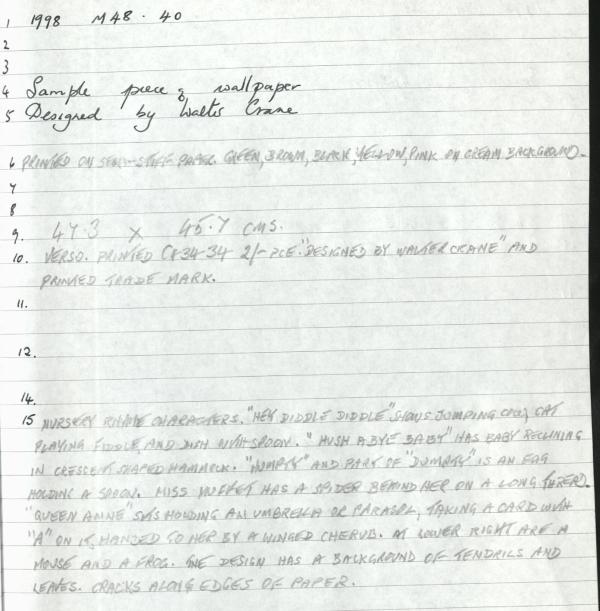 1 1998 M48 . 40
2
3
4 Sample piece of wallpaper
5 Designed by Walter Crane
6 PRINTED ON SEMI-STIFF PAPER. GREEN, BROWN, BLACK, YELLOW, PINK ON CREAM BACKGROUND.
7
8
9. 47.3 X 45.7 CMS.
10. VERSO. PRINTED 34 34 2/- PCE. "DESIGNED BY WALTER CRANE" AND
PRINTED TRADE MARK.
11.
12.
14.
15 NURSERY RHYME CHARACTERS. "HEY DIDDLE DIDDLE" SHOWS JUMPING COW, CAT
PLAYING FIDDLE, AND DISH WITH SPOON. "HUSH A BYE BABY" HAS BABY RECLINING
IN CRESCENT SHAPED HAMMOCK. "HUMPTY" AND PART OF "DUMPTY" IS AN EGG
HOLDING A SPOON. MISS MUFFET HAS A SPIDER BEHIND HER ON A LONG THREAD.
"QUEEN ANNE" SITS HOLDING AN UMBRELLA OR PARASOL, TAKING A CARD WITH
"A" ON IT, HANDED TO HER BY A WINGED CHERUB. AT LOWER RIGHT ARE A
MOUSE AND A FROG. THE DESIGN HAS A BACKGROUND OF TENDRILS AND
LEAVES. CRACKS ALONG EDGES OF PAPER.